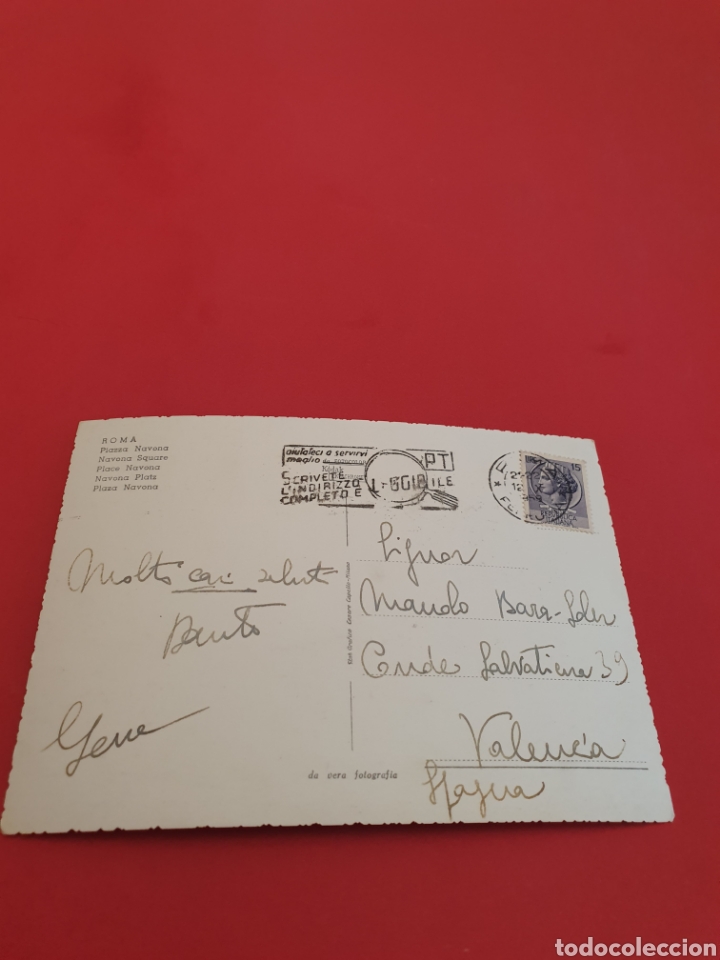 ROMA
Piazza Navona
Navona Square
Place Navona
Navona Platz
Plaza Navona
aiutateci a servirvi
meglio
SCRIVETE
L'INDIRIZZO
COMPLETO E
LEGGIBILE
PT
Kodak
15
Molti cari saluti
Signor
Manolo
Conde Salvatierra 39
Valencia
Spagna
da vera fotografia
todocoleccion